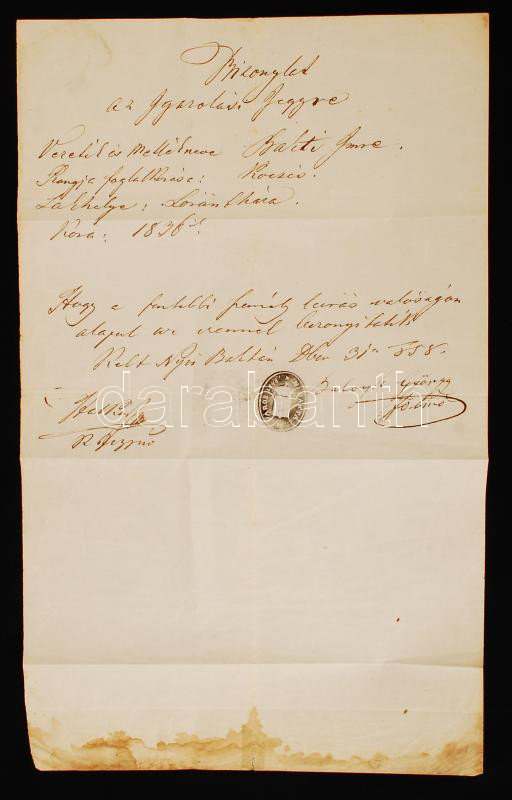 Bizonylat
az Igazolási Jegyre
Vezeték és Mellékneve Balti Imre.
Rangja foglalkozása: Kocsis.
Lakhelye: Lórántháza.
Kora: 1836
Hogy a fentebbi személy leírás valóságon
alapul az ezennel bizonyittatik
Kelt Nyír Baktán Dber 31n 858.
Balogh György
darabanth
R Jegyző